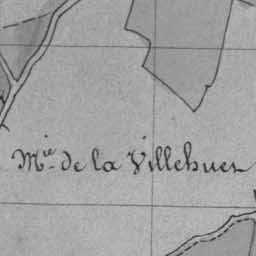 Mie de la Villehuer